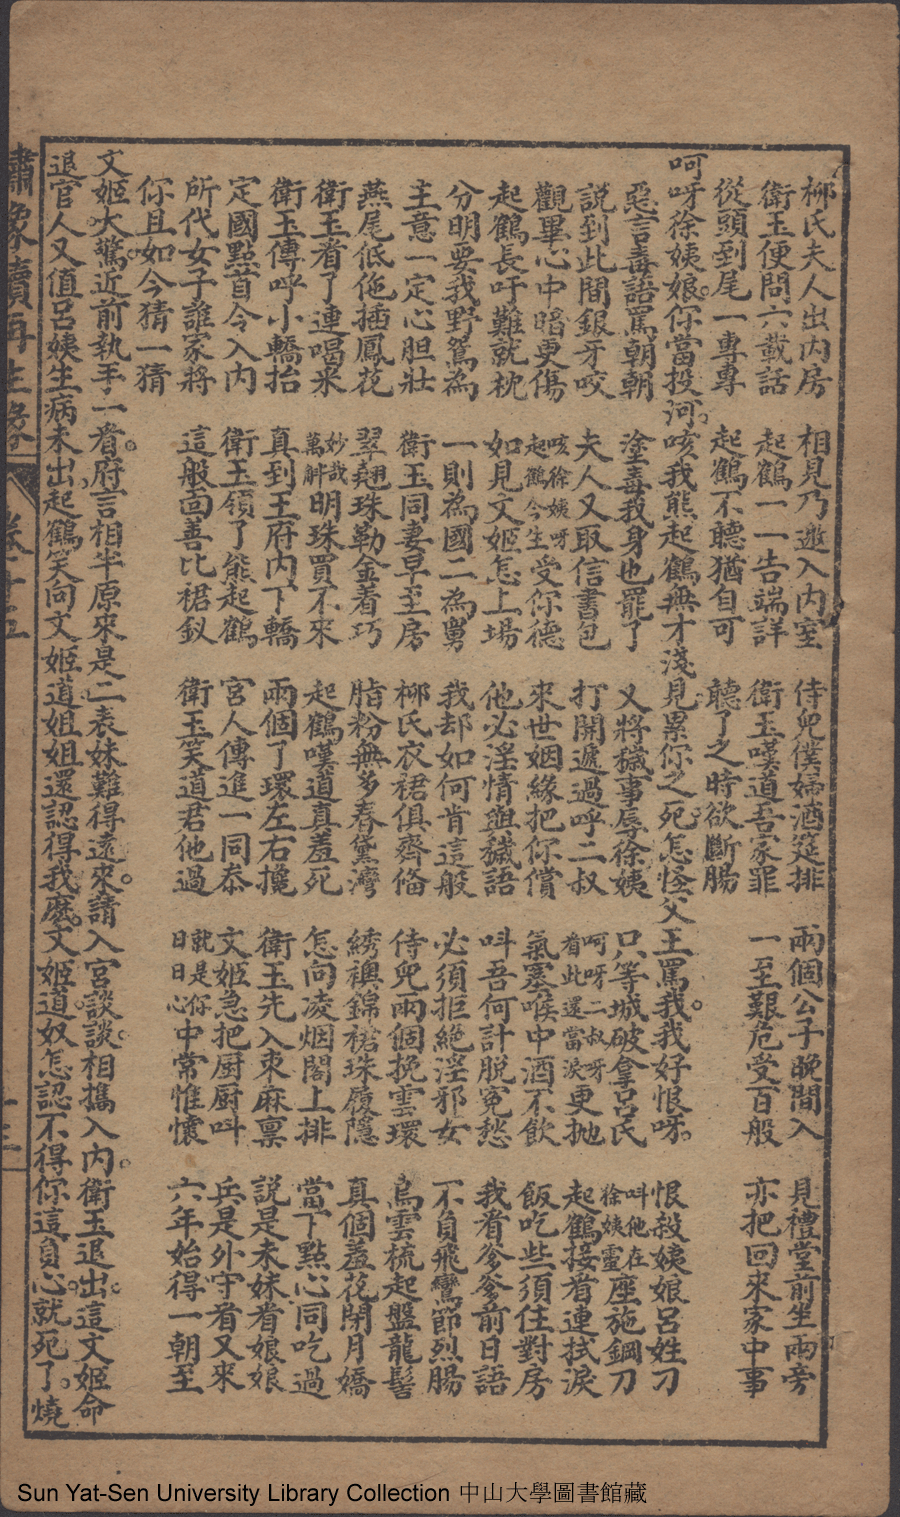 柳氏夫人出內房　相見乃邀入內室　侍兒僕婦酒筵排　兩個公子晚間入　見禮堂前坐兩旁
衛玉便問六載話　起鶴一一告端詳　衛玉嘆道吾家罪　一至艱危受百般　亦把回來家中事
從頭到尾一專專　起鶴不聽猶自可　聽了之時欲斷腸
呵呀徐姨娘。你當投河。咳我熊起鶴無才淺見累你之死。怎怪父王罵我。我好恨呀。
惡言毒語罵朝朝　塗毒我身也罷了　又將穢事辱徐姨　只等城破拿呂氏　恨殺姨娘呂姓刀
說到此間銀牙咬　夫人又取信書包　打開遞過呼二叔　呵呀二叔呀看此還當淚更拋　叫他在徐姨靈座施鋼刀
觀畢心中暗更傷　咳徐姨呀起鶴今生受你德　來世姻緣把你償　氣塞喉中酒不飲　起鶴接着連拭淚
起鶴長吁難就枕　如見文姬怎上場　他必淫情與穢語　叫吾何計脫冤愁　飯吃些須住對房
分明要我野鴛為　一則為國二為舅　我却如何肯這般　必須拒絕淫邪女　我看爹爹前日語
主意一定心胆壯　衛玉同妻早至房　柳氏衣裙俱齊俻　侍兒兩個挽雲環　不負飛鸞節烈腸
燕尾低拖插鳳花　翠翹珠勒金着巧　脂粉無多春黛灣　綉襖錦裙珠履隱　烏雲梳起盤龍髻
衛玉看了連喝采　妙哉萬斛明珠買不來　起鶴嘆道真羞死　怎向凌烟閣上排　真個羞花閉月嬌
衛玉傳呼小轎抬　真到王府內下轎　兩個了環左右攙　衛玉先入來麻禀　當下點心同吃過
定國點首令入內　衛玉領了熊起鶴　宮人傳進一同叅　文姬急把厨厨叫　說是未妹看娘娘
所代女子誰家將　這般面善比裙釵　衛玉笑道君他過　就是你日日心中常惟懷　兵是外守看又來
你且如今猜一猜　六年始得一朝至
文姬大驚。近前執手一看。府言相半原來是二表妹難得遠來。請入宮談談。相攜入內。衛玉退出。這文姬命
退官人又值呂姨生病未出起鶴笑向文姬道姐姐還認得我麽。文姬道奴怎認不得你這負心。就死了。燒
繡像續再生緣　卷十五　十三
Sun Yat-Sen University Library Collection 中山大學圖書館藏